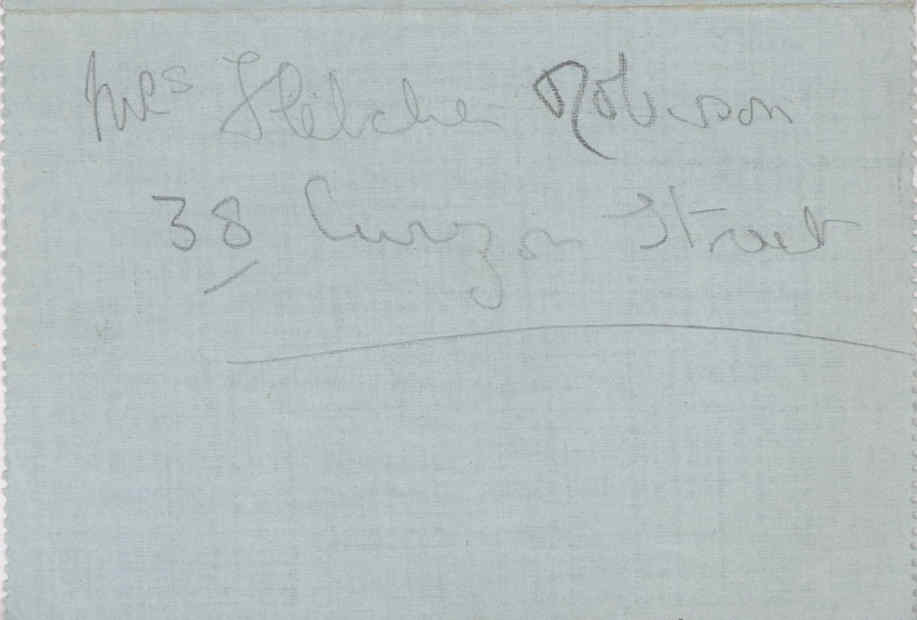 Mrs Fletcher Robinson
38 Curzon Street